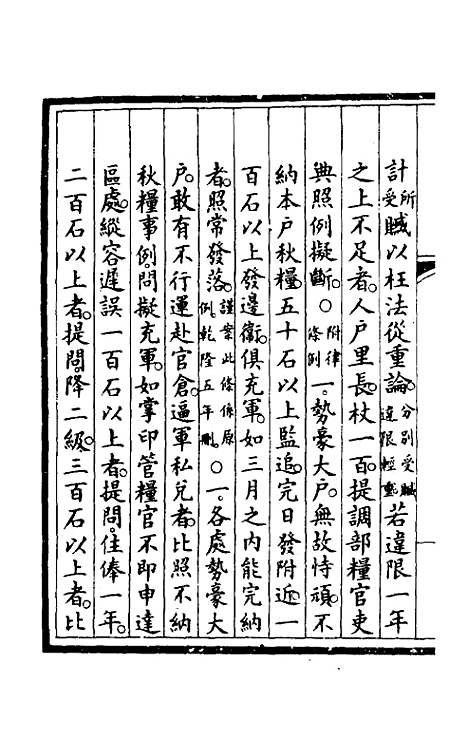 計所受贓以枉法從重論。分別受贓違限輕重若違限一年
之上不足者。人戶里長。杖一百。提調部糧官吏
典。照例擬斷。〇附律條例一。勢豪大戶。無故恃頑。不
納本戶秋糧。五十石以上監追。完日發附近。一
百石以上發邊衞。俱充軍。如三月之內能完納
者。照常發落。謹案此條係原例。乾隆五年刪。〇一。各處勢豪大
戶。敢有不行運赴官倉。逼軍私兌者。比照不納
秋糧事例。問擬充軍。如掌印管糧官不即申達
區處。縱容遲誤一百石以上者。提問。住俸一年。
二百石以上者。提問。降二級。三百石以上者。比